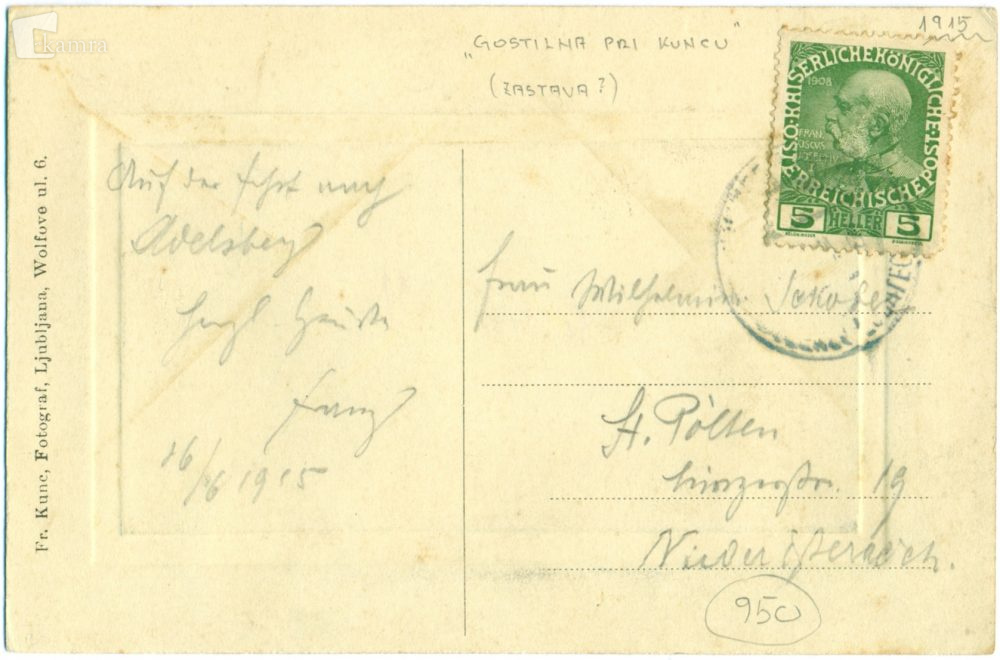 kamra
1915
"GOSTILNA PRI KUNCU"
(ZASTAVA?)
K.K.ÖSTERREICHISCHE POST
1908
FRAN
CISCVS
IOSEPH IV
5 HELLER 5
Fr. Kunc, Fotograf, Ljubljana, Wolfove ul. 6.
Auf der Fahrt nach
Adelsberg
Herzl. Grüße
Franz
16/6 1915
Frau Wilhelmine
St. Pölten
Linzerstr. 19
Niederösterreich.
950